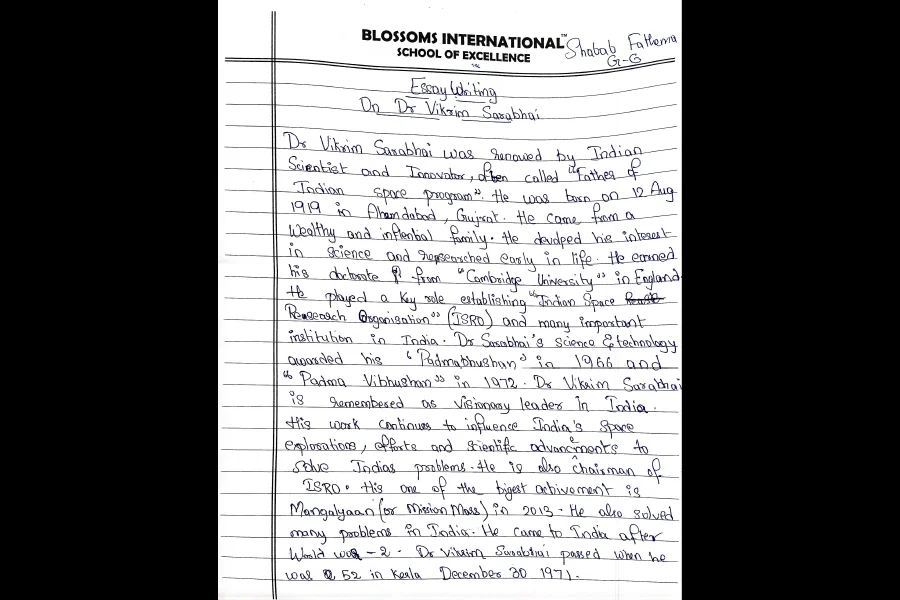 BLOSSOMS INTERNATIONAL™
SCHOOL OF EXCELLENCE
Shabab Fathema
G-6
Essay Writing
On Dr Vikrim Sarabhai
Dr Vikrim Sarabhai was renowed by Indian
Scientist and Innovator, often called "Father of
Indian space program". He was born on 12 Aug
1919 in Ahemdabad, Gujrat. He came from a
Wealthy and inflential family. He devolped his interest
in science and researched early in life. He earned
his doctorate from "Cambridge University" in England
He played a key role establishing "Indian Space
Reaseach Organisation" (ISRO) and many important
institution in India. Dr Sarabhai's science & technology
awarded his "Padmabhushan" in 1966 and
"Padma Vibhushan" in 1972. Dr Vikrim Sarabhai
is remembered as visionary leader In India.
His work continues to influence India's space
explorations, efforts and scientific advancements to
solve Indias problems. He is also chairman of
ISRO. His one of the bigest achivement is
Mangalyaan (or Mission Mars) in 2013. He also solved
many problems in India. He came to India after
World war -2. Dr Vikrim Sarabhai passed when he
was 52 in Kerla December 30 1971.